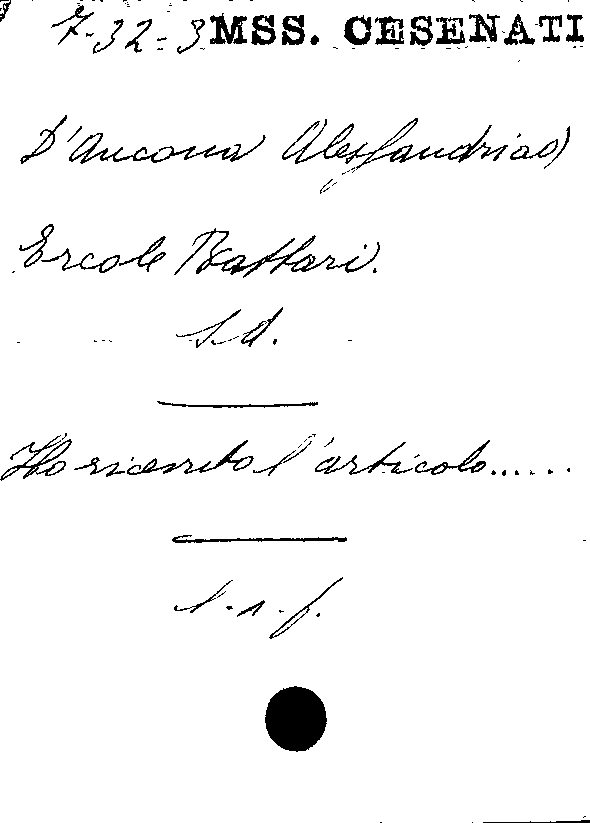 7-32-3 MSS. CESENATI
D'Ancona Alessandro
Ercole Battari.
s.d.
Ho ricevuto l'articolo......
1.a.f.